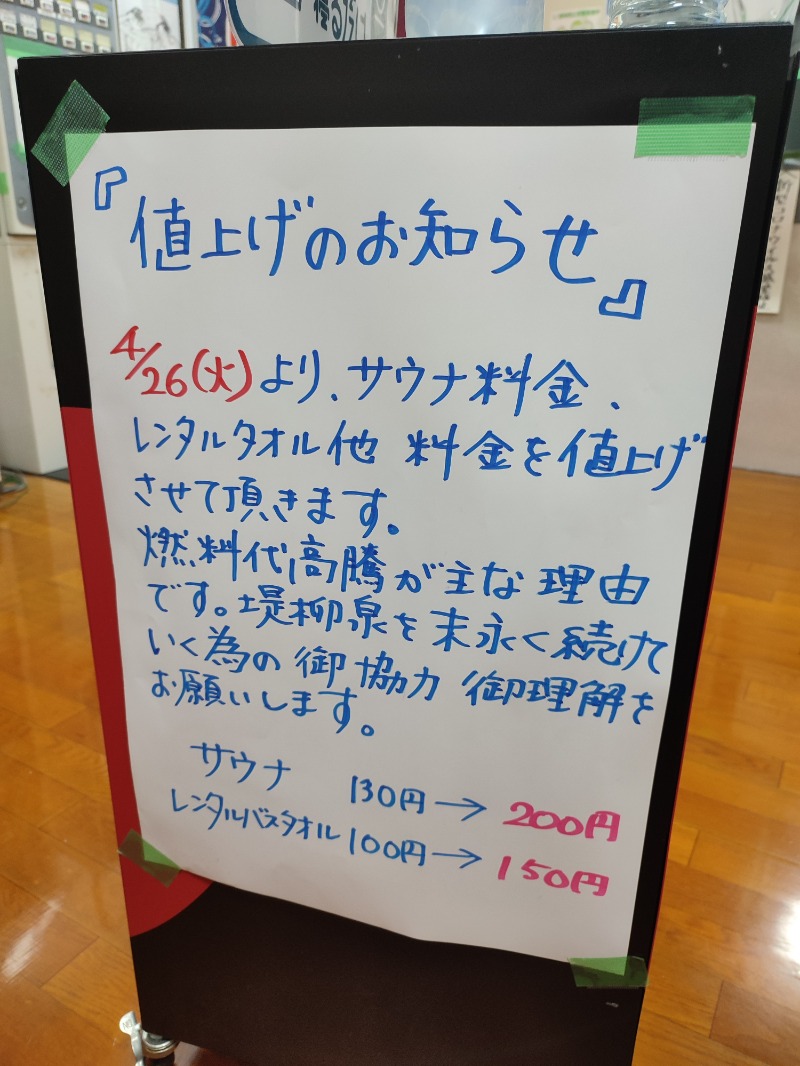 『値上げのお知らせ』
4/26(火)より、サウナ料金、
レンタルタオル他 料金を値上げ
させて頂きます。
燃料代高騰が主な理由
です。堤柳泉を末永く続けて
いく為の御協力 御理解を
お願いします。
サウナ 130円→200円
レンタルバスタオル 100円→150円